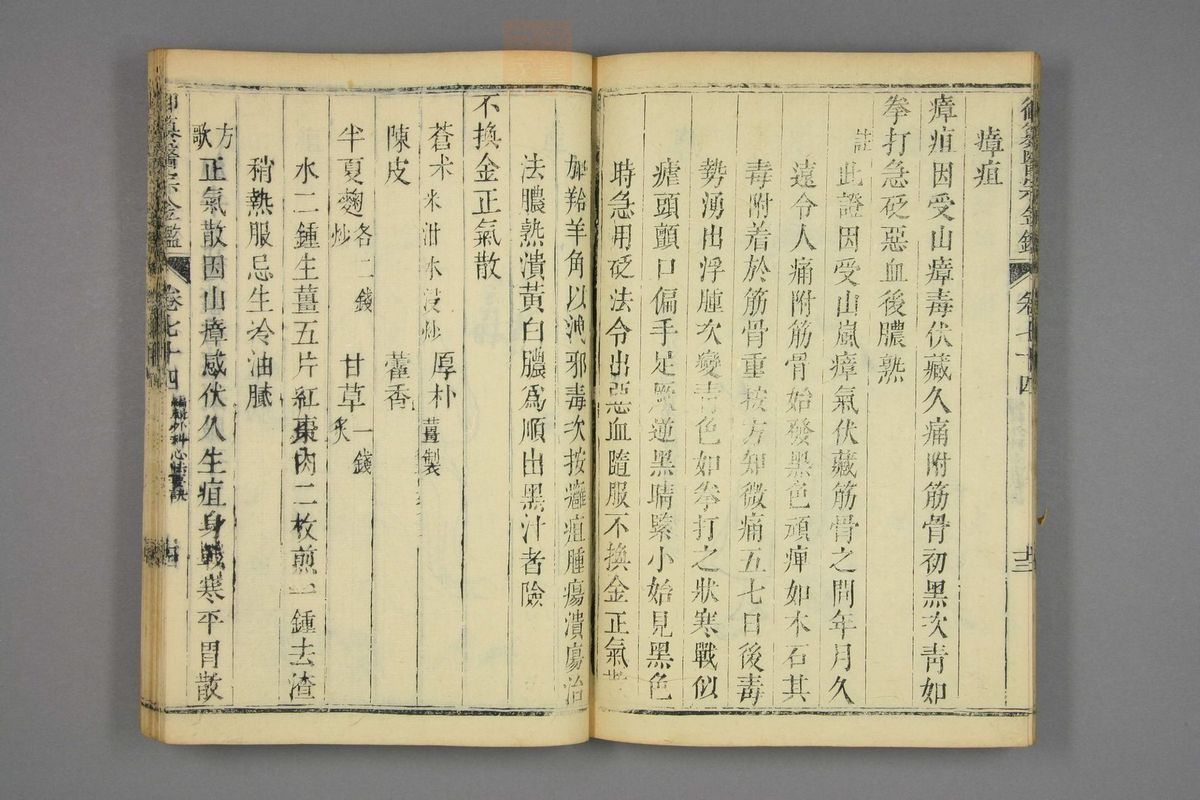 瘴疽
瘴疽因受山瘴毒伏藏久痛附筋骨初黑次青如
拳打急砭惡血後膿熟
註
此證因受山嵐瘴氣伏藏筋骨之間年月久
遠令人痛附筋骨始發黑色頑痺如木石其
毒附着於筋骨重按方知微痛五七日後毒
勢湧出浮腫次變青色如拳打之狀寒戰似
瘧頭顫口偏手足厥逆黑睛緊小始見黑色
時急用砭法令出惡血隨服不換金正氣散
加羚羊角以洩邪毒次按癰疽腫瘍潰瘍治
法膿熟潰黃白膿爲順出黑汁者險
不換金正氣散
蒼朮米泔水浸炒 厚朴薑製
陳皮 藿香
半夏麯炒各二錢 甘草炙一錢
水二鍾生薑五片紅棗肉二枚煎一鍾去渣
稍熱服忌生冷油膩
方歌
正氣散因山瘴感伏久生疽身戰寒平胃散
御纂醫宗金鑑
卷七十四
編輯外科心法要訣